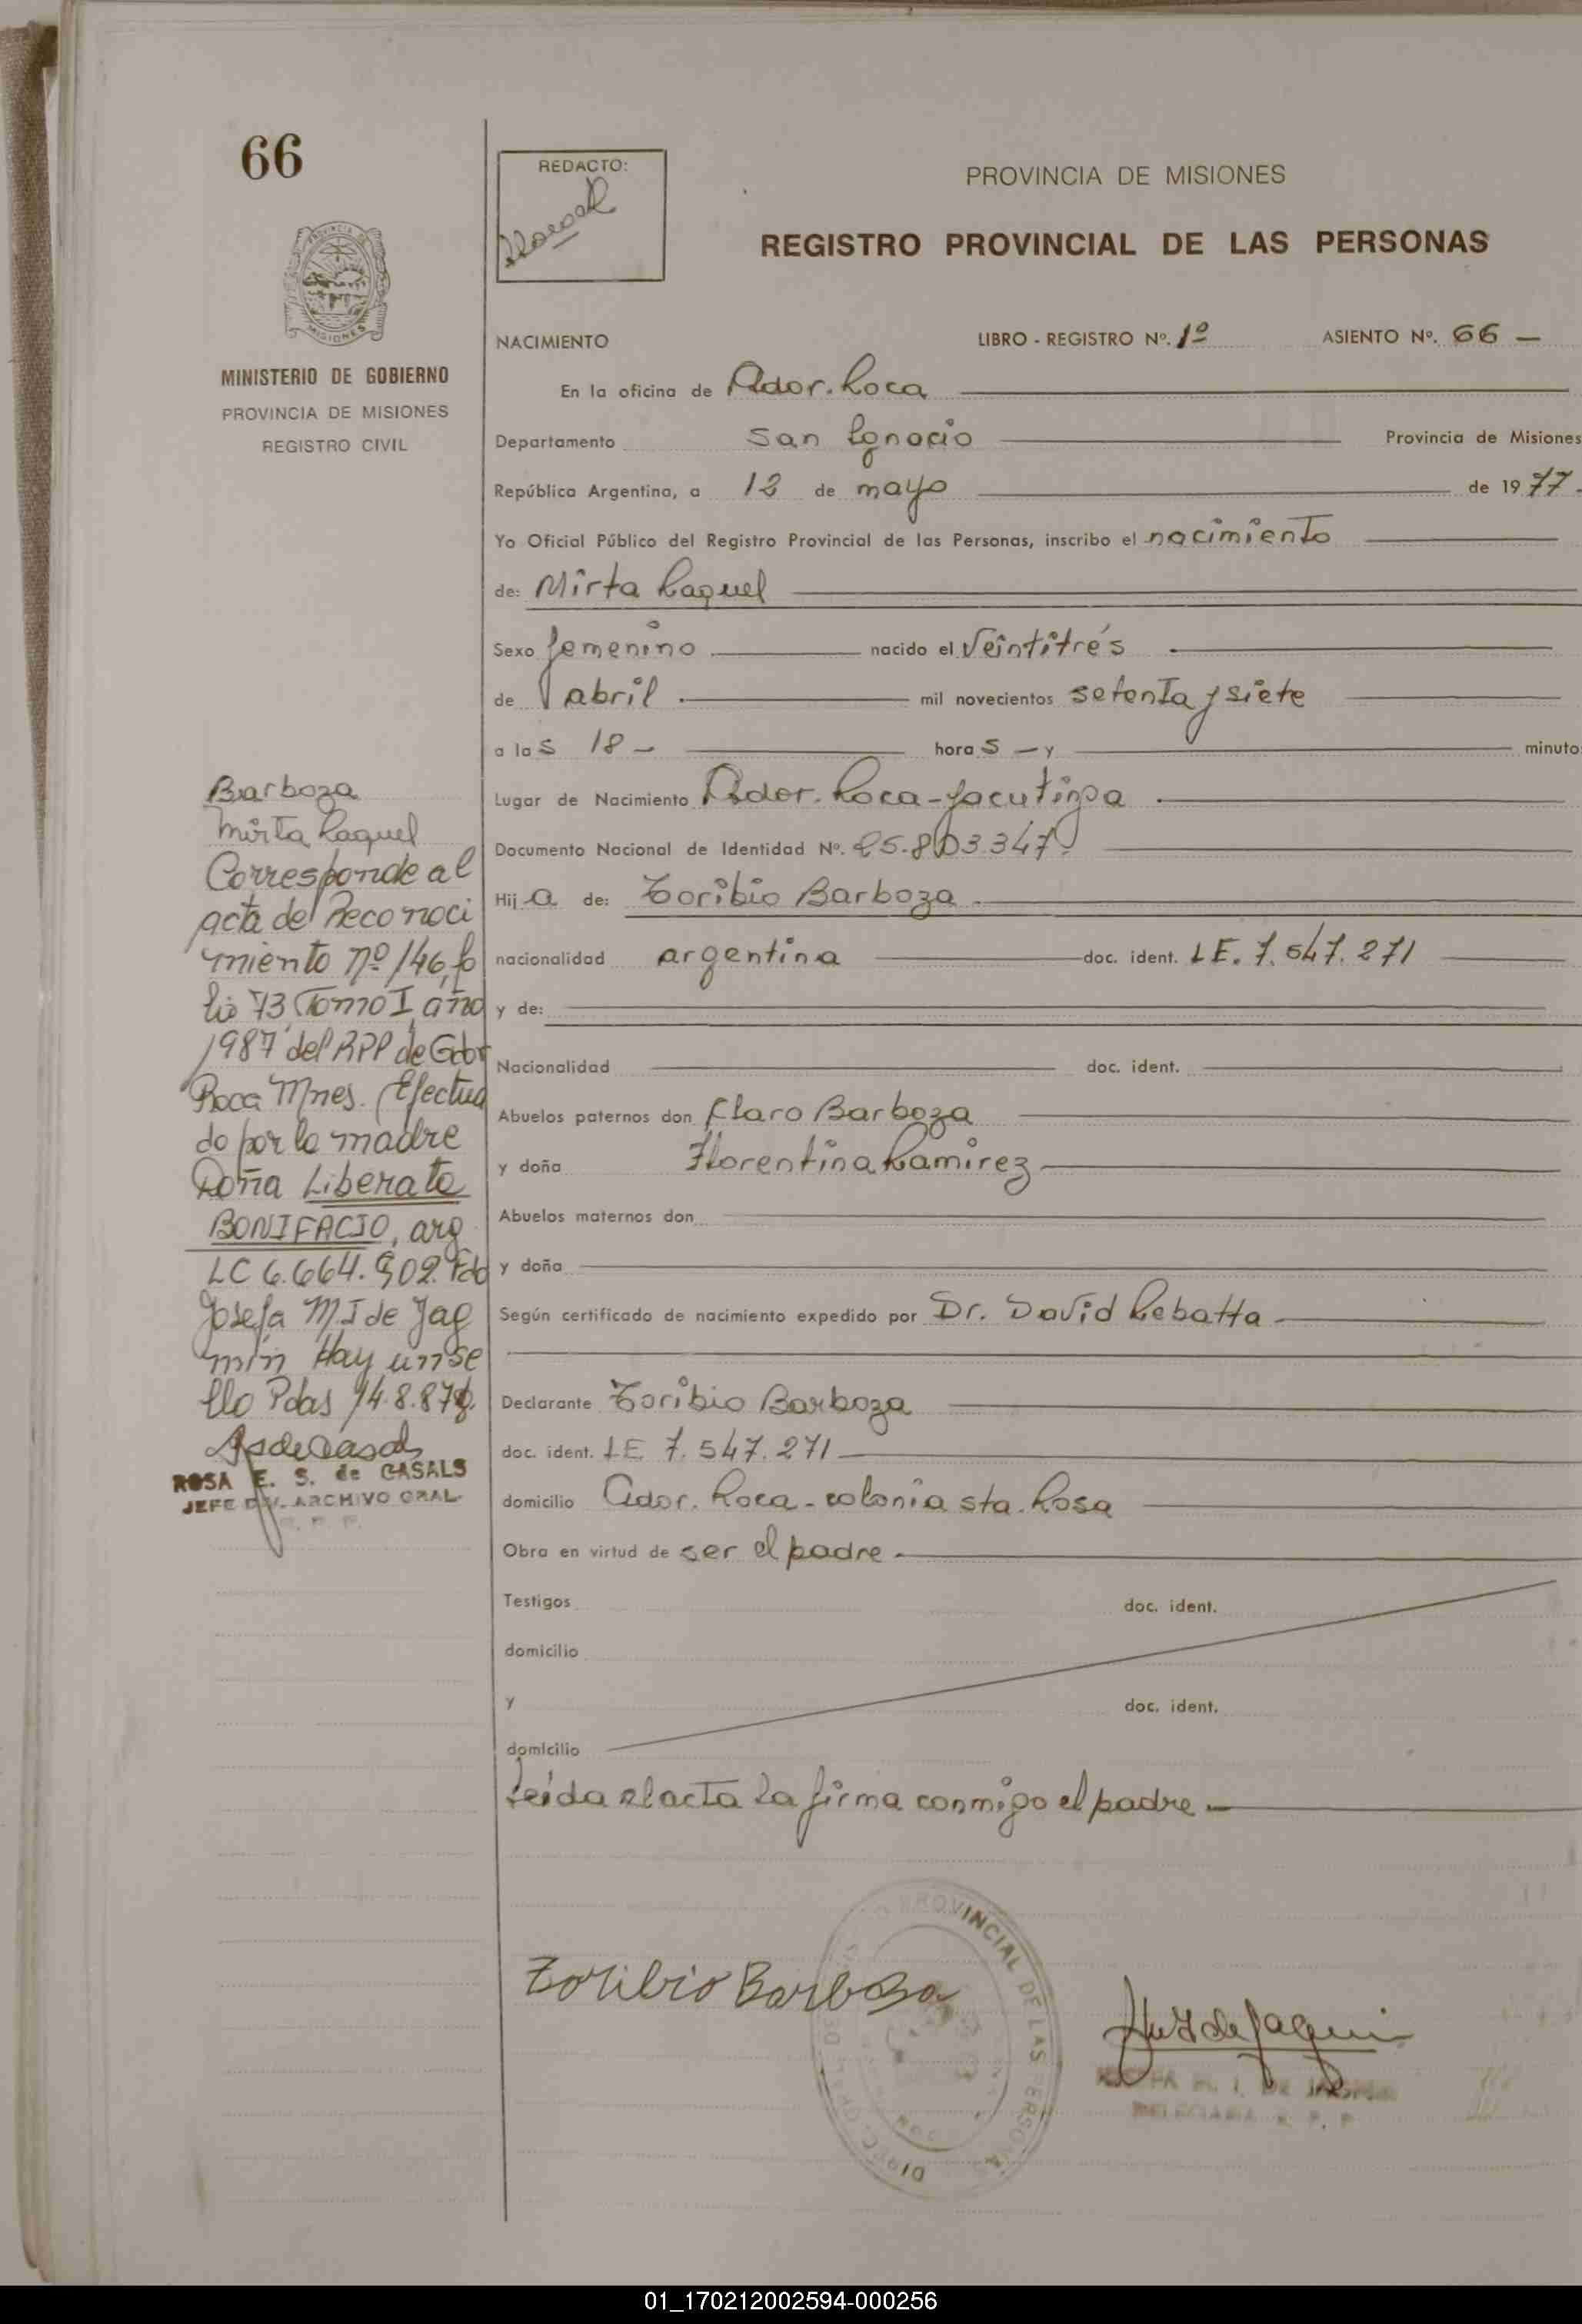 66
REDACTO:
PROVINCIA DE MISIONES
REGISTRO PROVINCIAL DE LAS PERSONAS
PROVINCIA DE
MISIONES
MINISTERIO DE GOBIERNO
PROVINCIA DE MISIONES
REGISTRO CIVIL
NACIMIENTO LIBRO - REGISTRO Nº. 1º ASIENTO Nº. 66 —
En la oficina de Gdor. Roca
Departamento San Ignacio Provincia de Misiones
República Argentina, a 12 de mayo de 1977.
Yo Oficial Público del Registro Provincial de las Personas, inscribo el nacimiento
de: Mirta Raquel
Sexo femenino nacido el Veintitrés
de abril. mil novecientos setenta y siete
a las 18 — horas — y minuto
Lugar de Nacimiento Gdor. Roca - Jacutinga
Documento Nacional de Identidad Nº. 25.803.347.
Hija de: Toribio Barboza
nacionalidad argentina doc. ident. LE. 7.547.271
y de:
Nacionalidad doc. ident.
Abuelos paternos don Claro Barboza
y doña Florentina Ramirez
Abuelos maternos don
y doña
Según certificado de nacimiento expedido por Dr. David Rebatta
Declarante Toribio Barboza
doc. ident. LE 7.547.271
domicilio Gdor. Roca - colonia sta. Rosa
Obra en virtud de ser el padre.
Testigos doc. ident.
domicilio
y doc. ident.
domicilio
Leída el acta la firma conmigo el padre.
Toribio Barboza
PROVINCIAL DE LAS PERSONAS
Barboza
Mirta Raquel
Corresponde al
acta de Reconoci
miento nº 146, fo
lio 73, Tomo I, año
1987 del RPP de Gdor
Roca Mnes. Efectua
do por la madre
Doña Liberata
BONIFACIO, arg
LC 6.664.902. Fdo
Josefa M.I de Jag
min Hay un se
llo Pdas 14.8.87
ROSA E. S. de CASALS
JEFE DIV. ARCHIVO GRAL.
R. P. P.
01_170212002594-000256